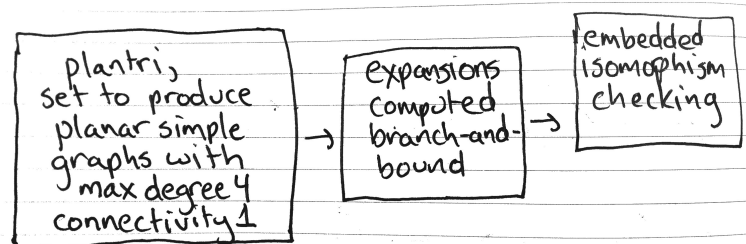 plantri,
set to produce
planar simple
graphs with
max degree 4
connectivity 1
expansions
computed
branch-and-
bound
embedded
isomophism
checking